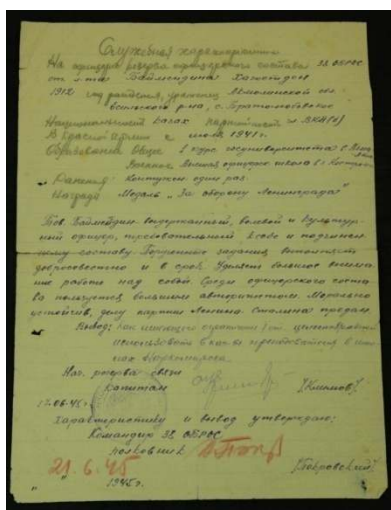 Служебная характеристика
На офицера резерва офицерского состава 38 ОБРОС
ст. л-та Баймолдина Хамитдол
1912 года рождения, уроженец Акмолинской об
с. Братолюбовское
Национальность казах партийность чл. ВКП(б)
В Красной Армии с июля 1941 г.
Образование Общее 2 курс госуниверситета г.
Военное Военная школа г. Кострома
Ранения: Контужен один раз.
Награды Медаль "За оборону Ленинграда"
Тов. Баймолдин выдержанный, волевой и культур-
ный офицер, требовательный к себе и подчинен-
ному составу. Порученные задания выполняет
добросовестно и в срок. Уделяет большое внима-
ние работе над собой. Среди офицерского соста-
ва пользуется большим авторитетом. Морально
устойчив, делу партии Ленина Сталина предан.
Вывод: Как имеющего целесообразно
использовать
Нач. резерва связи
капитан /Климов/
17.06.45 г.
Характеристику и вывод утверждаю:
Командир 38 ОБРОС
полковник
/Бобровский/
21.6.45
" " 1945 г.